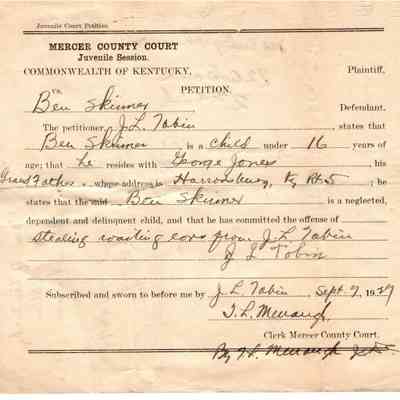 Juvenile Court Petition.
MERCER COUNTY COURT
Juvenile Session.
COMMONWEALTH OF KENTUCKY, Plaintiff,
vs. PETITION.
Ben Skinner Defendant.
The petitioner J. L. Tobin, states that
Ben Skinner is a child under 16 years of
age; that he resides with George Jones, his
Grand Father, whose address is Harrodsburg, Ky Rt 5; he
states that the said Ben Skinner is a neglected,
dependent and delinquent child, and that he has committed the offense of
stealing roasting ears from J L Tobin
J L Tobin
Subscribed and sworn to before me by J. L. Tobin, Sept. 7, 1929
T. L. Menaugh
Clerk Mercer County Court.
By T L Menaugh